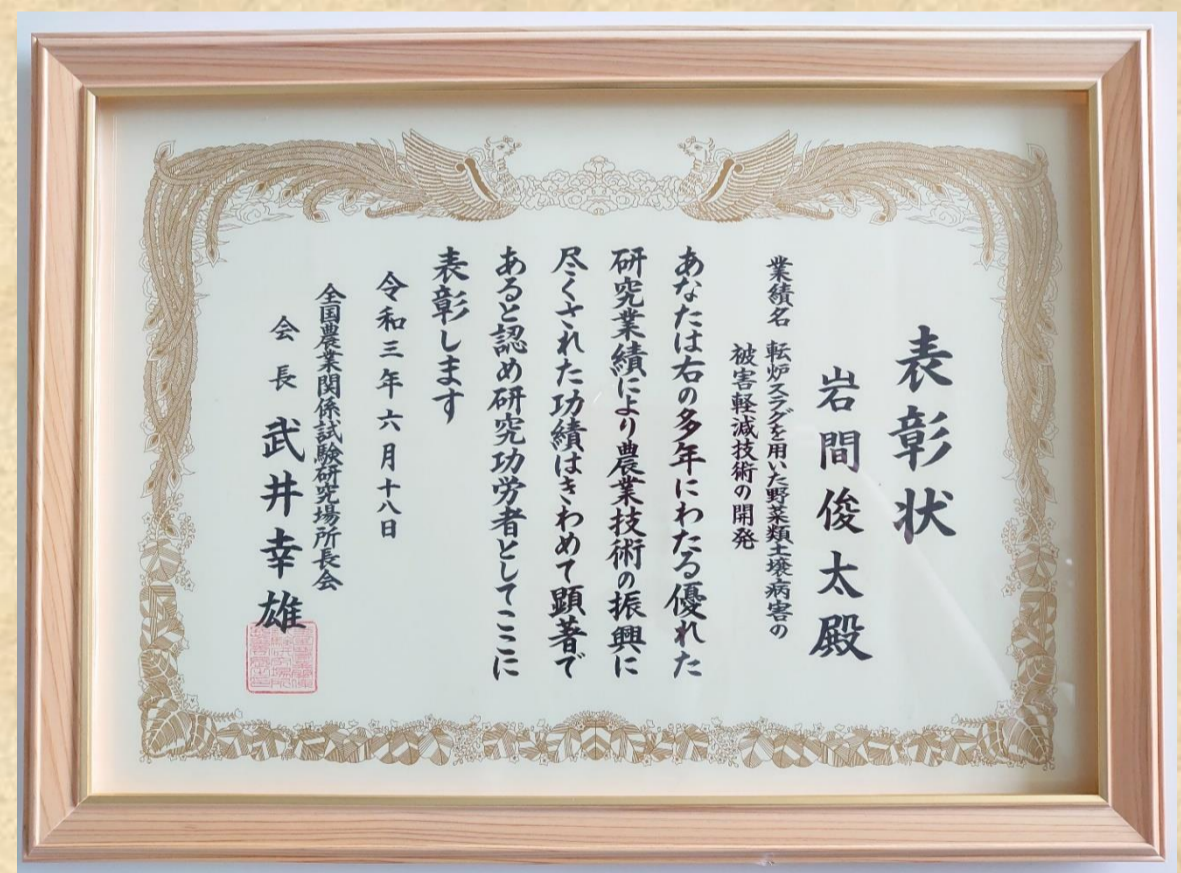 表彰状
岩間俊太殿
業績名 転炉スラグを用いた野菜類土壌病害の
被害軽減技術の開発
あなたは右の多年にわたる優れた
研究業績により農業技術の振興に
尽くされた功績はきわめて顕著で
あると認め研究功労者としてここに
表彰します
令和三年六月十八日
全国農業関係試験研究場所長会
会長 武井幸雄